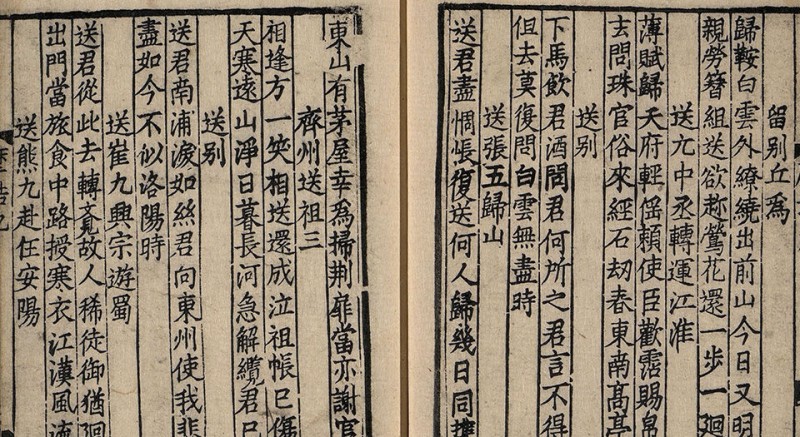 留别丘爲
歸鞍白雲外繚繞出前山今日又明
親勞簪組送欲趂鶯花還一步一廻
送亢中丞轉運江淮
薄賦歸天府輕徭頼使臣歡霑賜帛
玄問珠官俗來經石刼春東南高亭
送别
下馬飲君酒問君何所之君言不得
但去莫復問白雲無盡時
送張五歸山
送君盡惆悵復送何人歸幾日同擕
東山有茅屋幸爲掃荆扉當亦謝官
齊州送祖三
相逢方一笑相送還成泣祖帳已傷
天寒遠山淨日暮長河急解纜君已
送别
送君南浦淚如絲君向東州使我悲
盡如今不似洛陽時
送崔九興宗遊蜀
送君從此去轉覺故人稀徒御猶廻
出門當旅食中路授寒衣江漢風流
送熊九赴任安陽